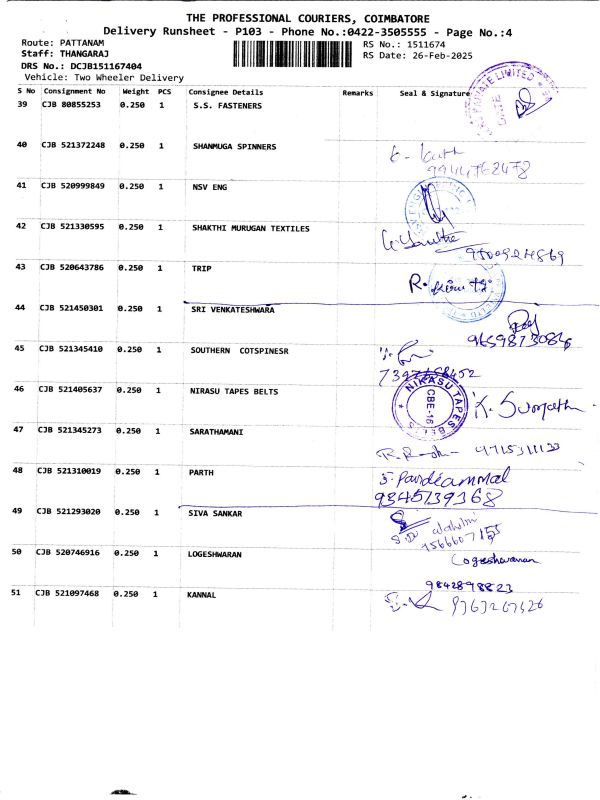 THE PROFESSIONAL COURIERS, COIMBATORE
Delivery Runsheet - P103 - Phone No.:0422-3505555 - Page No.:4
Route: PATTANAM
RS No.: 1511674
Staff: THANGARAJ
RS Date: 26-Feb-2025
DRS No.: DCJB151167404
Vehicle: Two Wheeler Delivery
S No Consignment No Weight PCS Consignee Details Remarks Seal & Signature
39 CJB 80855253 0.250 1 S.S. FASTENERS
PRIVATE LIMITED
40 CJB 521372248 0.250 1 SHANMUGA SPINNERS
9944762478
41 CJB 520999849 0.250 1 NSV ENG
42 CJB 521330595 0.250 1 SHAKTHI MURUGAN TEXTILES
43 CJB 520643786 0.250 1 TRIP
R.
44 CJB 521450301 0.250 1 SRI VENKATESHWARA
9659873086
45 CJB 521345410 0.250 1 SOUTHERN COTSPINESR
46 CJB 521405637 0.250 1 NIRASU TAPES BELTS
NIKASU TAPES BELTS
CBE-16
47 CJB 521345273 0.250 1 SARATHAMANI
48 CJB 521310019 0.250 1 PARTH
S. Pandiammal
9845739168
49 CJB 521293020 0.250 1 SIVA SANKAR
50 CJB 520746916 0.250 1 LOGESHWARAN
Logeshwaran
9842898823
51 CJB 521097468 0.250 1 KANNAL